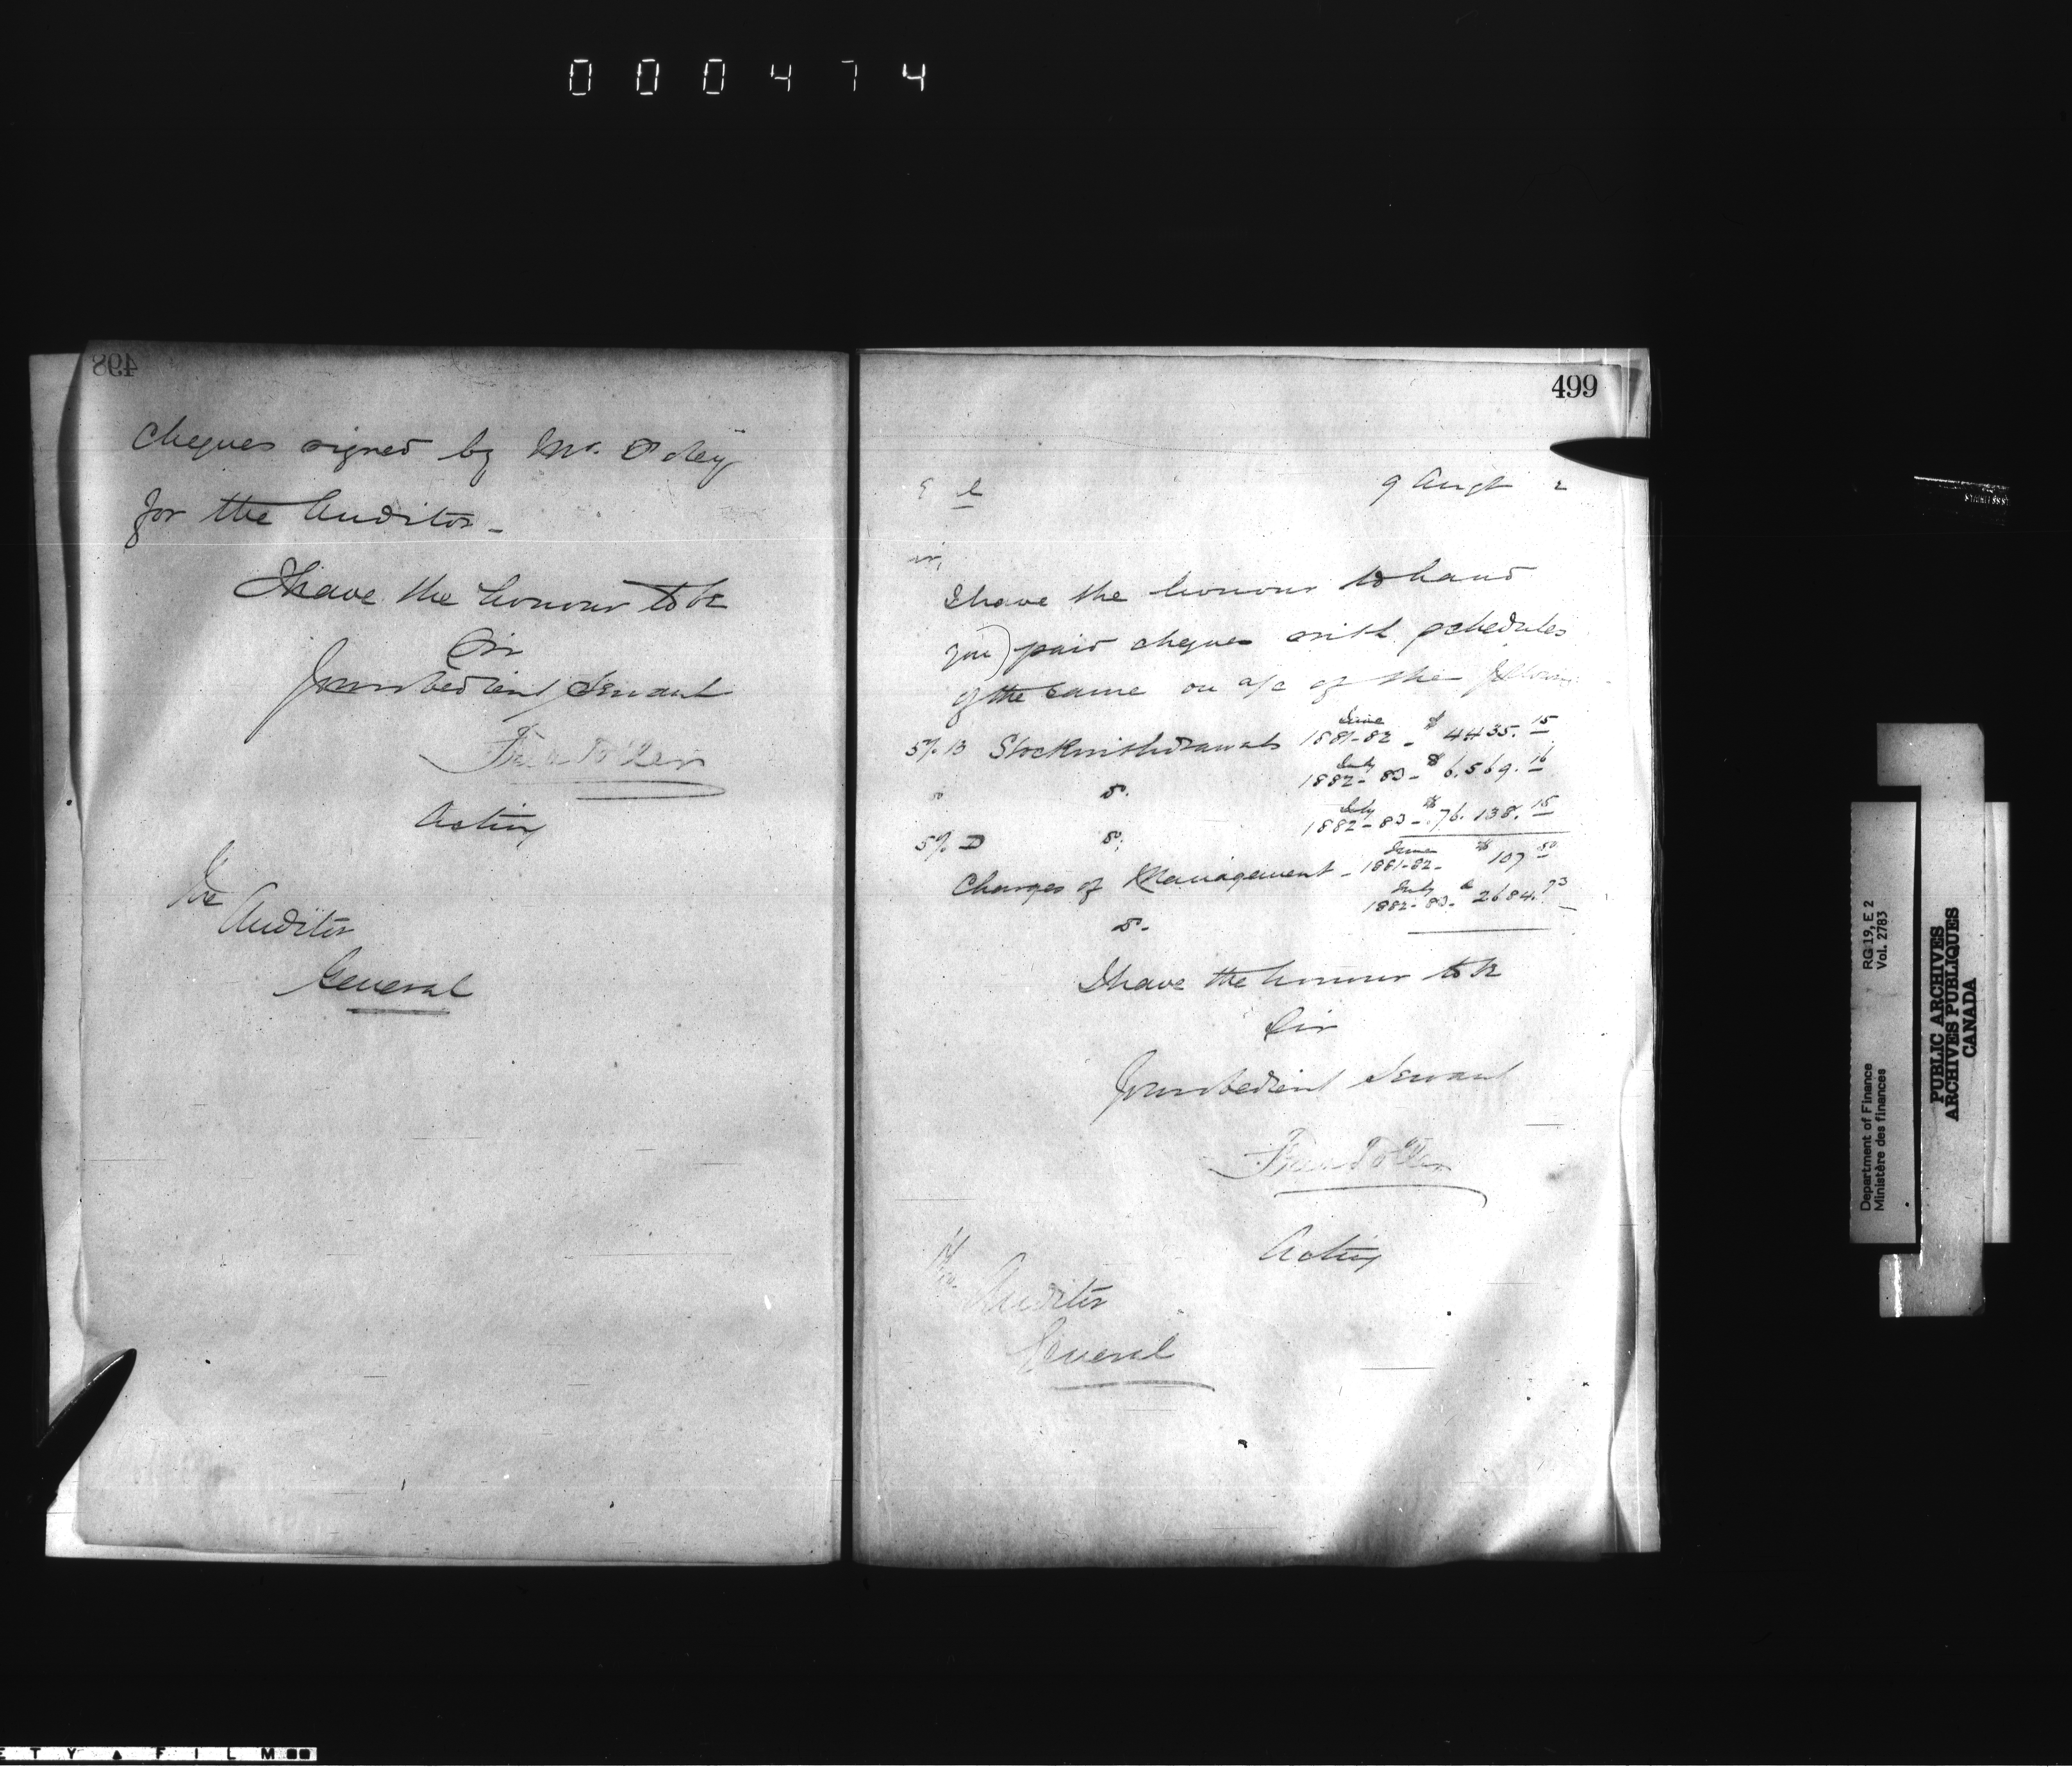 000474
498
cheques signed by Mr.
for the Auditor _
I have the honour to be
Sir
Your obedient Servant
Acting
The
Auditor
General
499
9 Augt 2
I have the honour to hand
you paid cheques with schedules
of the same on a/c of the following
5% B Stock withdrawals June 1881-82 - $ 4435.15
" do. July 1882-83 - $ 6.569.16
5% D do. July 1882-83 - $ 76.138.15
Charges of Management - June 1881-82 - $ 107 50
do - July 1882-83 - $ 2684.73
I have the honour to be
Sir
Your obedient Servant
Acting
The
Auditor
General
Department of Finance RG 19, E 2
Ministère des finances Vol. 2783
PUBLIC ARCHIVES
ARCHIVES PUBLIQUES
CANADA
ETY ▲ FILM